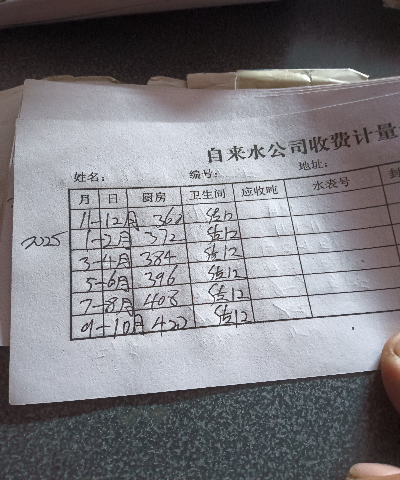 自来水公司收费计量
姓名: 编号: 地址:
月 日 厨房 卫生间 应收吨 水表号
11-12月 362 估12
2025 1-2月 372 估12
3-4月 384 估12
5-6月 396 估12
7-8月 408 估12
9-10月 420 估12